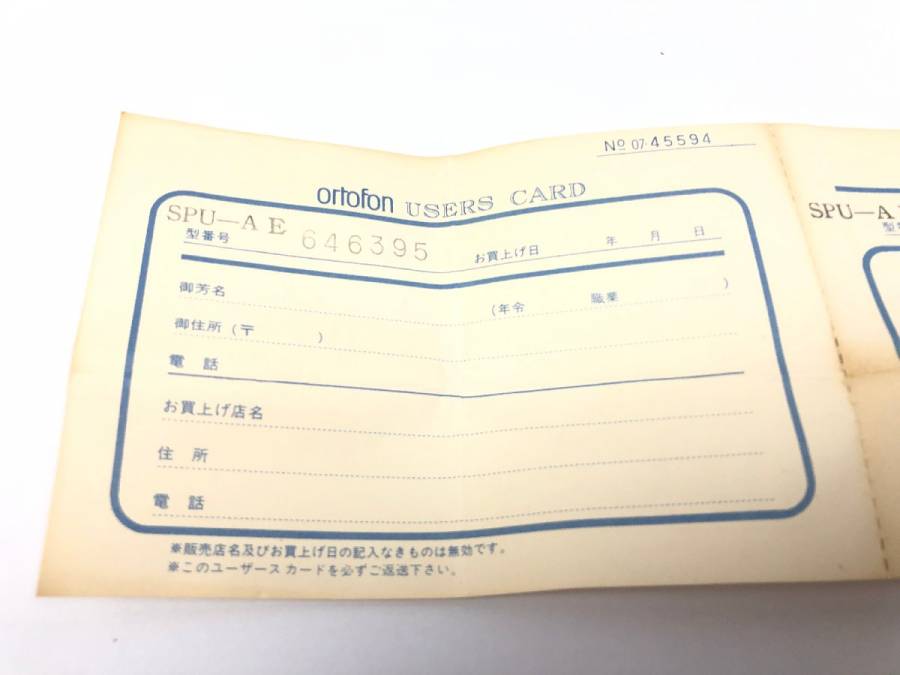 No 07-45594
ortofon USERS CARD
SPU—A E
型番号 646395 お買上げ日 年 月 日
御芳名 (年令 職業 )
御住所(〒 )
電 話
お買上げ店名
住 所
電 話
※販売店名及びお買上げ日の記入なきものは無効です。
※このユーザース カードを必ずご返送下さい。
SPU—A